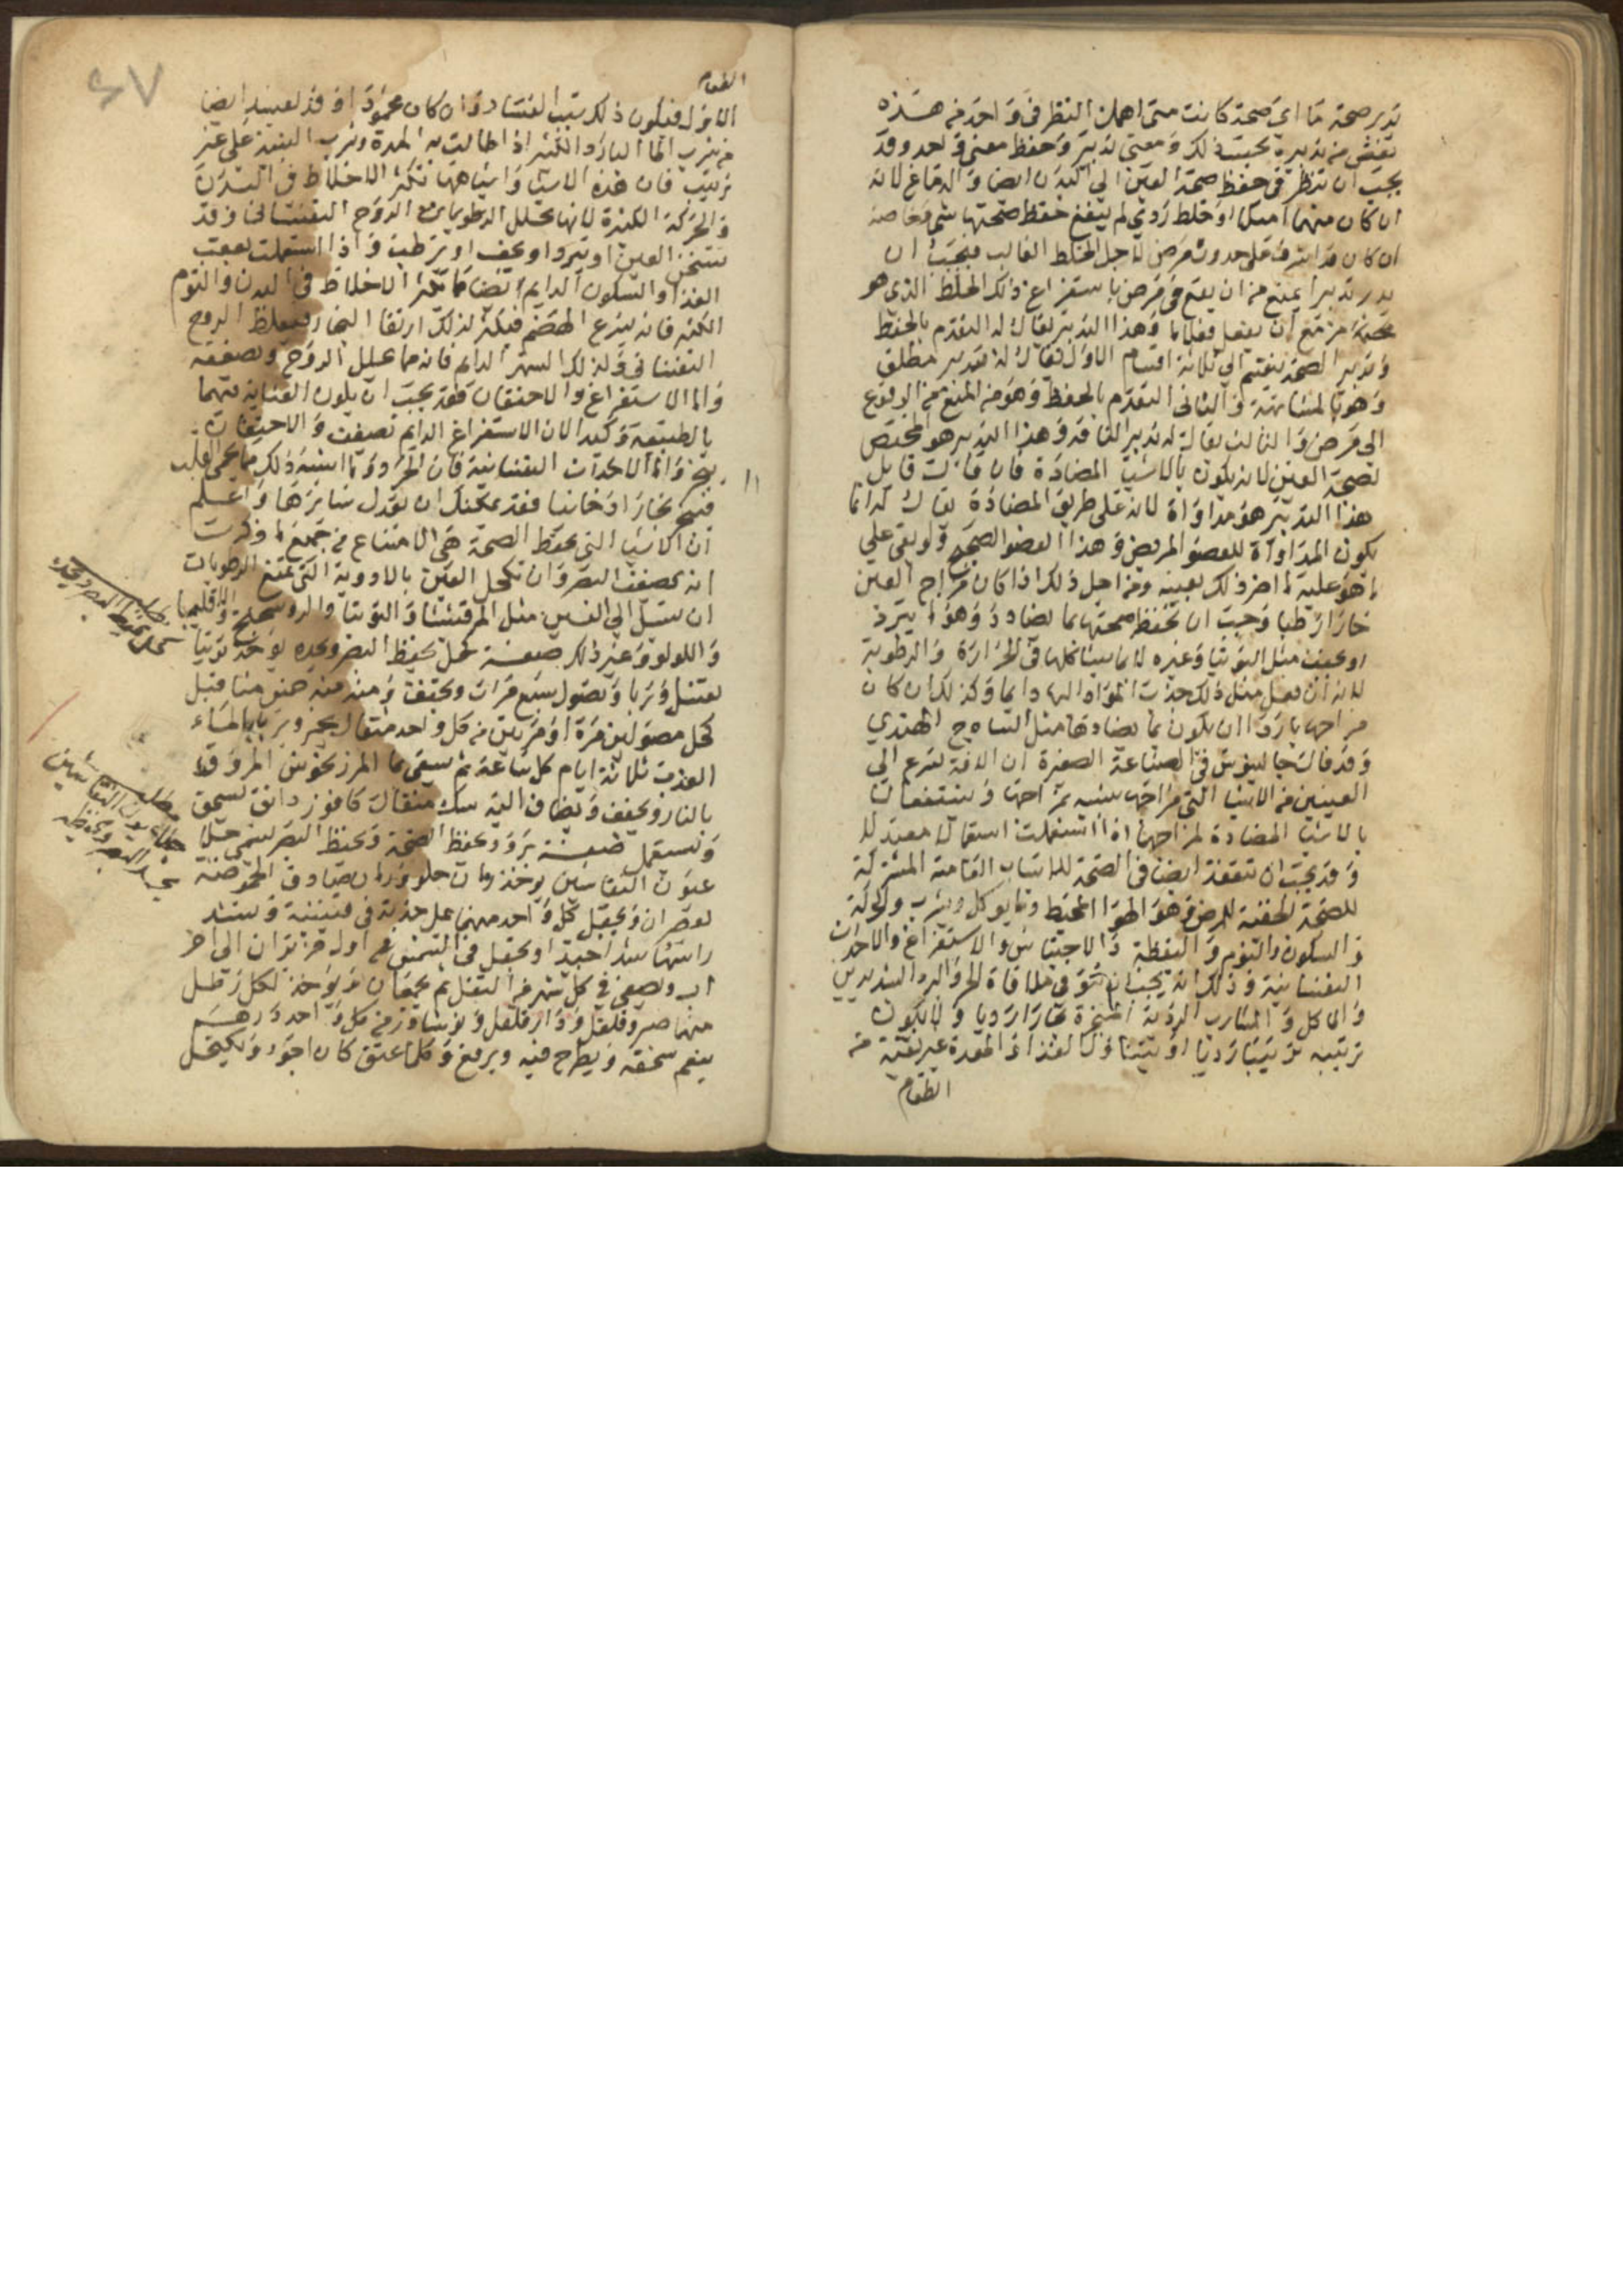 تدبر صحة ما اي صحة كانت متى اهملت النظر في واحد من هذه
نقص من تدبيره بحسب ذلك ومعنى تدبير وحفظ معنى واحد وقد
يجب ان تنظر في حفظ صحة العين الي البدن ايضا والدماغ لانه
ان كان منهما امتلا او خلط ردي لم ينفع حفظ صحتها شيا وخاصة
ان كان قد اشرف على حدوث مرض لاجل الخلط الغالب فيجب ان
تدبر تدبيرا يمنع من ان يقع في مرض باستفراغ ذلك الخلط الذي هو
وهذا التدبير يقال له التقدم بالحفظ
وتدبير الصحة ينقسم الي ثلاثة اقسام الاول يقال له تدبير مطلق
وهو بالمشابهة والثاني التقدم بالحفظ وهو من المنع من الوقوع
الى مرض والثالث يقال له تدبير الناقه وهذا التدبير هو المختص
لصحة العين لانه يكون بالاشيا المضادة فان قال قايل
هذا التدبير هو مداواة لانه على طريق المضادة يقال له انما
يكون المداواة للعضو المريض وهذا العضو الصحيح ولو بقي علي
ما هو عليه لم اضر ذلك بعينه ومن اجل ذلك اذا كان مزاج العين
حارا رطبا وجب ان تحفظ صحتها بما يضادد وهو ما يبرد
او يجفف مثل التوتيا وغيره لانها يشاكلها في الحرارة والرطوبة
لانه ان فعل مثل ذلك جذبت المواد اليها دايما وكذلك ان كان
مزاجها باردا ان يكون بما يضادها مثل الساذج الهندي
وقد قال جالينوس في الصناعة الصغيرة ان الافة تسرع الي
العينين من الاشيا التي مزاجها شبيه بمزاجها وينتفعان
بالاشيا المضادة لمزاجها اذا استعملت استعمالا معتدلا
وقد يجب ان تتفقد ايضا في الصحة للاسباب العامة المشتركة
للصحة المحفنة للمرض وهو الهوا المحيط وما يوكل ويشرب والحركة
والسكون والنوم واليقظة والاحتباس والاستفراغ والاحداث
النفسانية وذلك انه يجب ان تتوقى ملاقاة الحر والبرد الشديدين
والماكل والمشارب الردية المبخرة بخارا رديا ولا يكون
ترتيبه ترتيبا رديا او يتناول الغذا والمعدة غير نقية من
الطعام
الطعام
الاول فيكون ذلك سبب الفساد وان كان محمودا وقد يعينه ايضا
من شرب الما البارد الكثير اذا طالت به المدة وشرب النبيذ على غير
ترتيب فان هذه الاشيا واشباهها تكثر الاخلاط في البدن
والحركة الكثيرة لانها تحلل الرطوبات الروح النفساني وقد
تسخن العين او تبرد او تجفف او ترطب واذا استعملت بعقب
الغذا والسكون الدايم ايضا مما تكثر الاخلاط في البدن والنوم
الكثير فانه يسرع الهضم فيكثر لذلك ارتقا البخار فيغلظ الروح
النفساني وكذلك السهر الدايم فانه مما يحلل الروح ويضعفه
واما الاستفراغ والاحتقان فقد يجب ان يكون العناية بهما
بالطبيعة وكيد لان الاستفراغ الدايم تضعف والاحتقان
يبخر واما الاحداث النفسانية فان الحرد وما اشبه ذلك مما يحمي القلب
فيبخر بخارا دخانيا فقد يمكنك ان تعدل سايرها واعلم
ان الاشيا التي تحفظ الصحة هي الامتناع من جميع ما ذكرت
انه يضعف البصر وان تكحل العين بالادوية التي تمنع الرطوبات
ان تسيل الي العين مثل المرقشيثا والتوتيا والروسختج والاقليميا
واللولو وغير ذلك صفة كحل يحفظ البصر ويحده يوخذ توتيا
يغسل ويربا ويصول سبع مرات ويجفف ومثله
كحل مصول مرة او مرتين من كل واحد مثقال يبخر ويربا بالماء
العذب ثلاثة ايام كل ساعة ثم يسقى ما المرزنجوش المروق
بالنار ويجفف ويضاف اليه مسك مثقال كافور دانق يسحق
ويستعمل صفة برود يحفظ الصحة ويحفظ البصر يسمى جلا
عيون النقاشين يوخذ رمان حلو ورمان صادق الحموضة
يعصران ويجعل كل واحد منهما على حدته في قنينة وتسد
راسها سدا جيدا وتجعل في الشمس من اول حزيران الى اخر
اب ويصفى في كل شهر من الثفل ثم يجمعان ويوخذ لكل رطل
منهما صبر وفلفل ودار فلفل ونوشادر من كل واحد درهم
ينعم سحقه ويطرح فيه ويرفع وكلما عتق كان اجود ويكتحل
مطلب
كحل يحفظ البصر ويحده
مطلب
جلا عيون النقاشين
يحد البصر ويحفظه